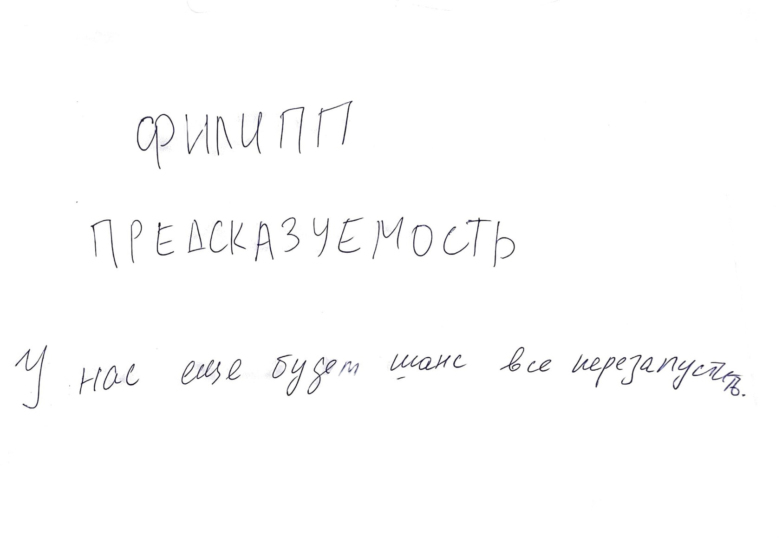 ФИЛИПП
ПРЕДСКАЗУЕМОСТЬ
У нас еще будет шанс все перезапустить.